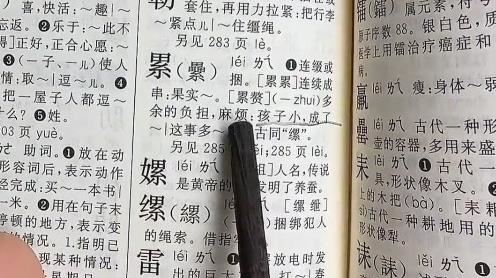 喜,快活:~趣|~
忘返。❷乐于:~此不
得]正好,正合心愿:~
❸(一子、一儿)使人
情:取~|逗~儿。❹
把一屋子人都逗~
什么?❺姓。
03 页 yuè。
助词。❶放在动
形容词后,表示动作
已经完成:买~一本书|
一米。❷用在句子末
停顿的地方,表示变
的情况。1.指明已
现某种情况:
勒
套住,再用力拉紧:把行李
~紧点儿|~住缰绳。
另见 283 页 lè。
累(纍) léi ㄌㄟˊ ❶连缀或
捆。[累累]连续成
串:果实~。[累赘](-zhui)多
余的负担,麻烦:孩子小,成了
~|这事多~ 古同“缧”。
另见 285 ěi;285 页 lèi。
嫘 léi ㄌㄟˊ 祖]人名,传说
是黄帝的 发明了养蚕。
缧(縲) léi ㄌㄟˊ [缧绁]
捆绑犯人
的绳索。借指
雷 léi 放电时发
出的巨大
镭(鐳) léi ㄌㄟˊ
属元素,符号
子序数 88。银白色,质
医学上用镭治疗癌症和
病。
羸 léi ㄌㄟˊ 瘦:身体~
罍 léi ㄌㄟˊ 古代一种形
壶的容器,多用来盛
耒 lěi ㄌㄟˇ 古代一种
具,形状像木叉。
上的木把(bà)。[耒
sì)古代一种耕地用的
形状像犁。
诔(誄) lěi ㄌㄟˇ ❶古代